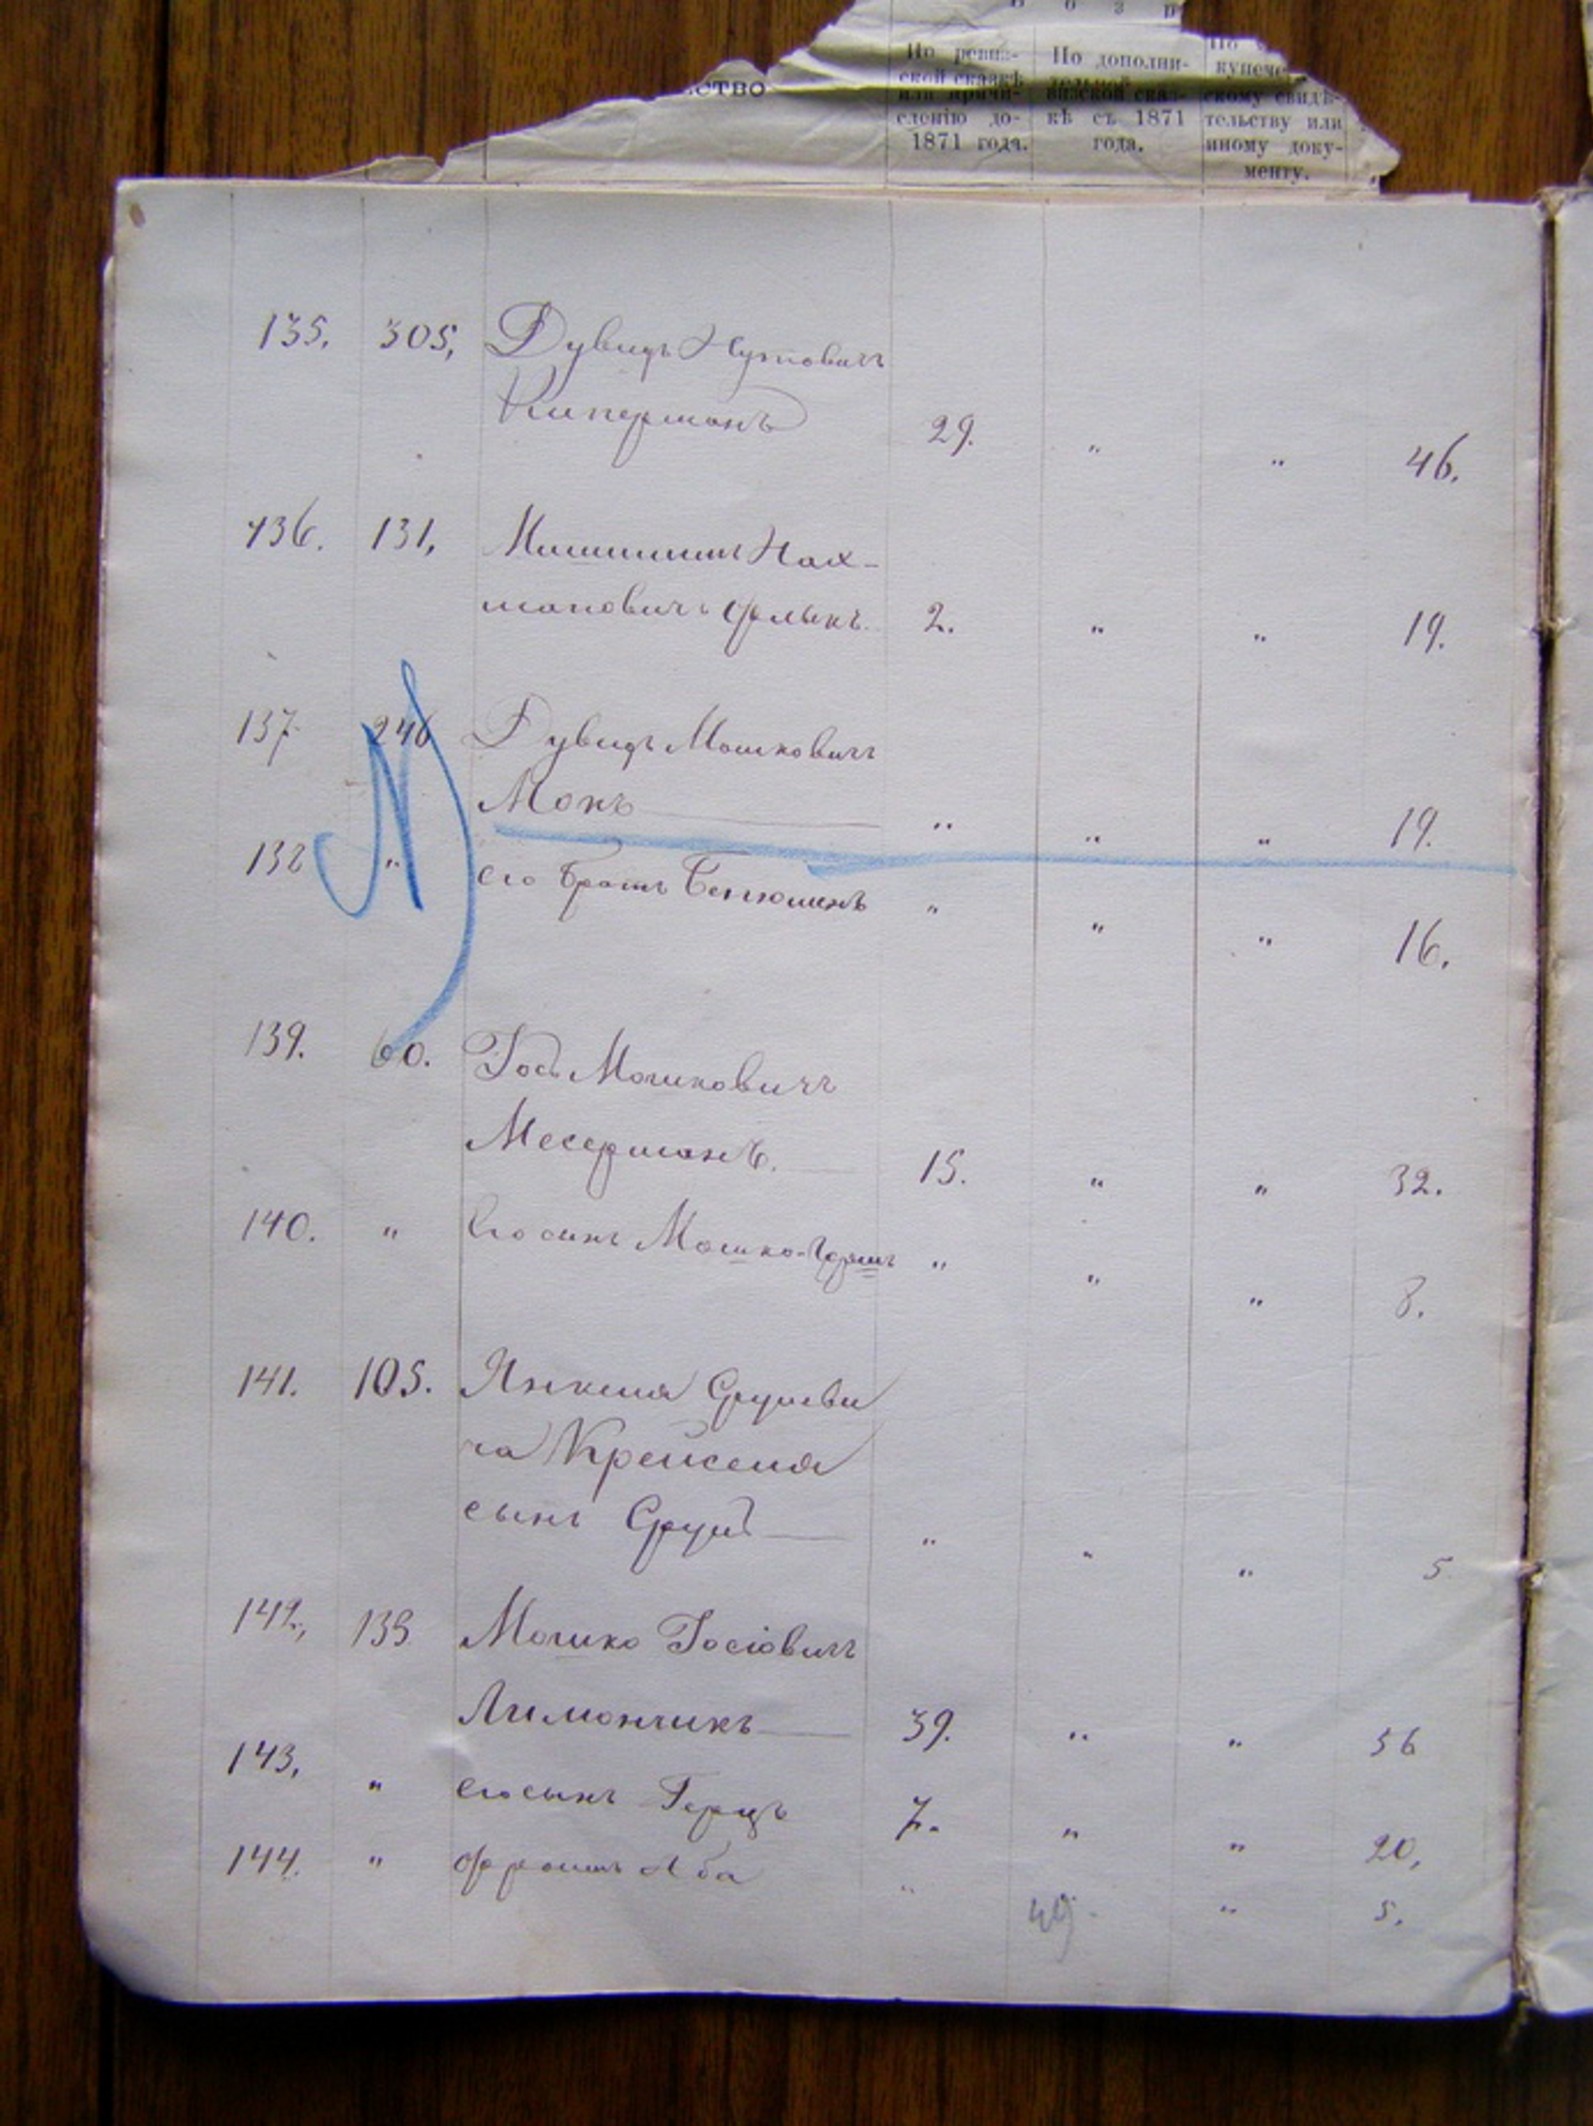 В о з р
ство
По ревиз-
ской сказкѣ
или причи-
сленію до-
1871 года.
По дополни-
тельной
визской сказ-
кѣ съ 1871
года.
По
купече
скому свидѣ-
тельству или
иному доку-
менту.
135. 305, Дувидъ Нутовичъ
Киперманъ 29. " " 46.
136. 131, Нах-
мановичъ Фельикъ 2. " " 19.
137 246 Дувидъ Мошковичъ
Мокъ " " " 19.
138 " его братъ Бенюминъ " " " 16.
139. 60. Іось Мошковичъ
Месерманъ. 15. " " 32.
140. " его сынъ Мошко- " " " 8.
141. 105. Янкеля Сруливи
ча Крейселя
сынъ Сруль " " " 5
142, 139 Мошко Іосіовичъ
Лимончикъ 39. " " 56
143, " его сынъ Герцъ 7. " " 20,
144. " Аба " 49 " 5.